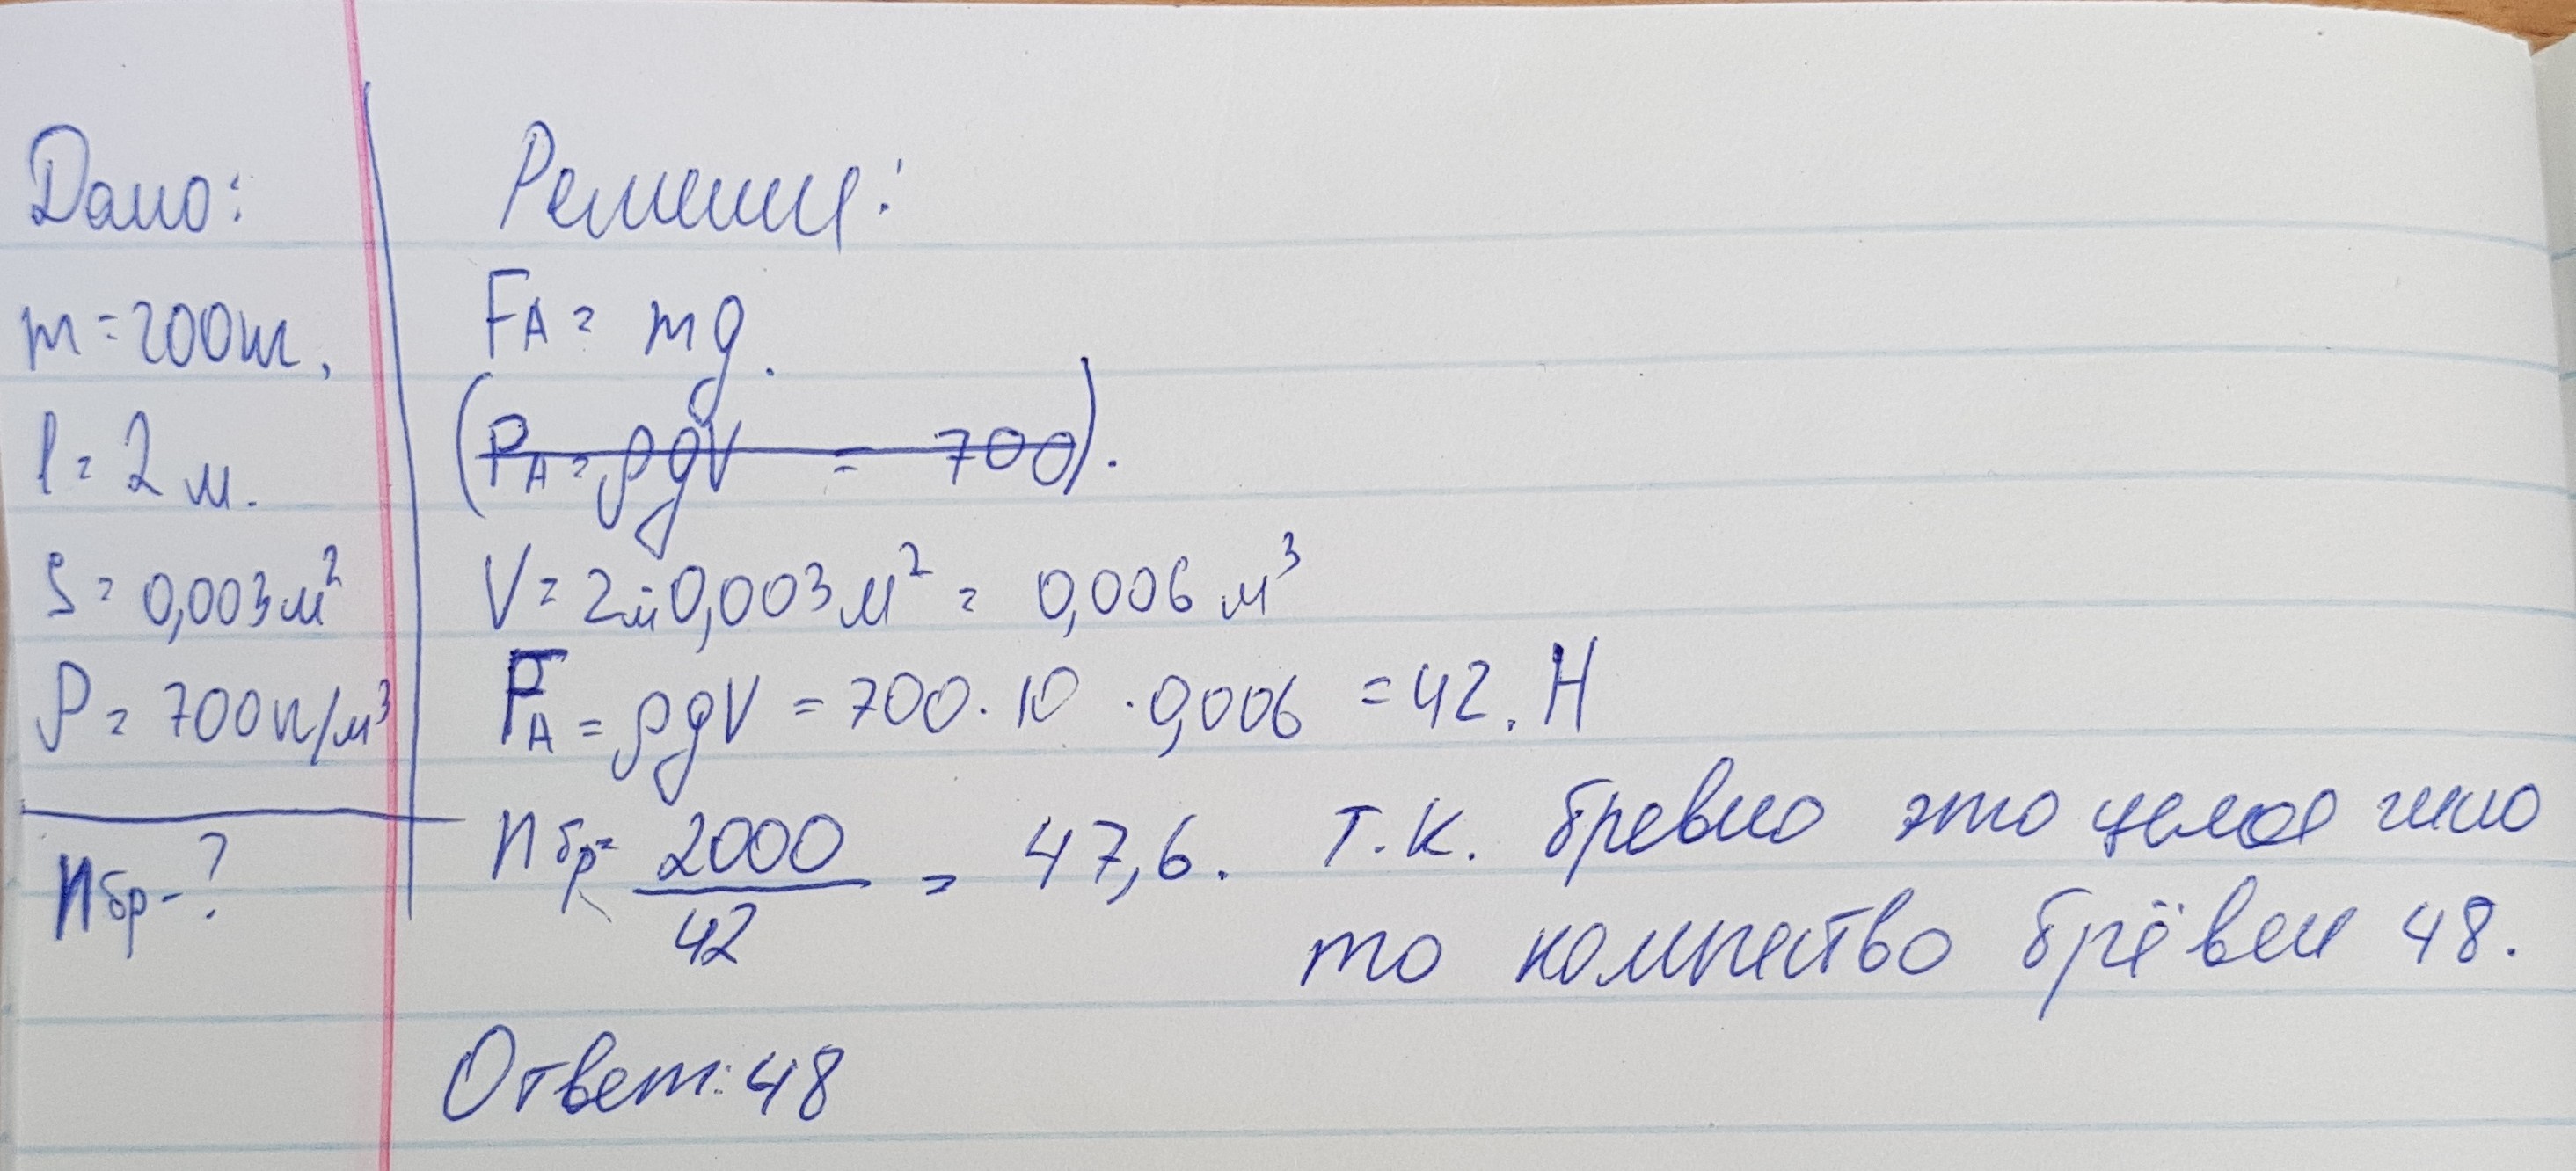 Дано:
m = 200кг.
l = 2 м.
S = 0,003 м²
ρ = 700кг/м³
nбр - ?
Решение:
FA = mg.
(PA = ρgV = 700).
V = 2м·0,003 м² = 0,006 м³
FA = ρgV = 700 · 10 · 0,006 = 42. Н
nбр = 2000/42 = 47,6. Т.к. бревно это целое число
то количество брёвен 48.
Ответ: 48